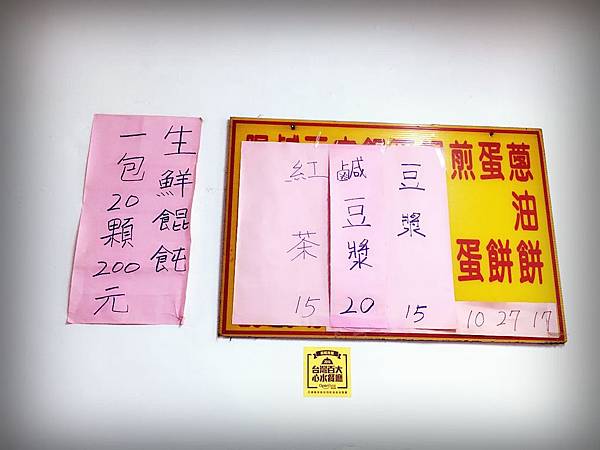 生鮮餛飩
一包20顆200元
蔥油餅 17
蛋餅 27
煎蛋 10
豆漿 15
鹹豆漿 20
紅茶 15
台灣百大
心水餐廳